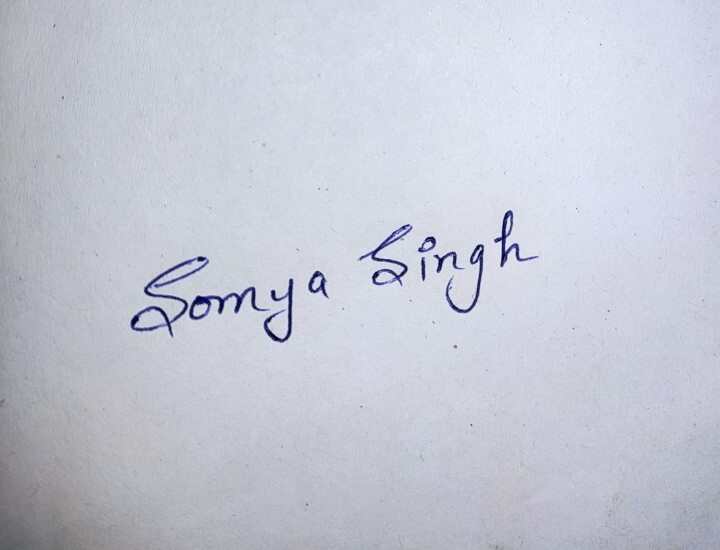 Somya Singh